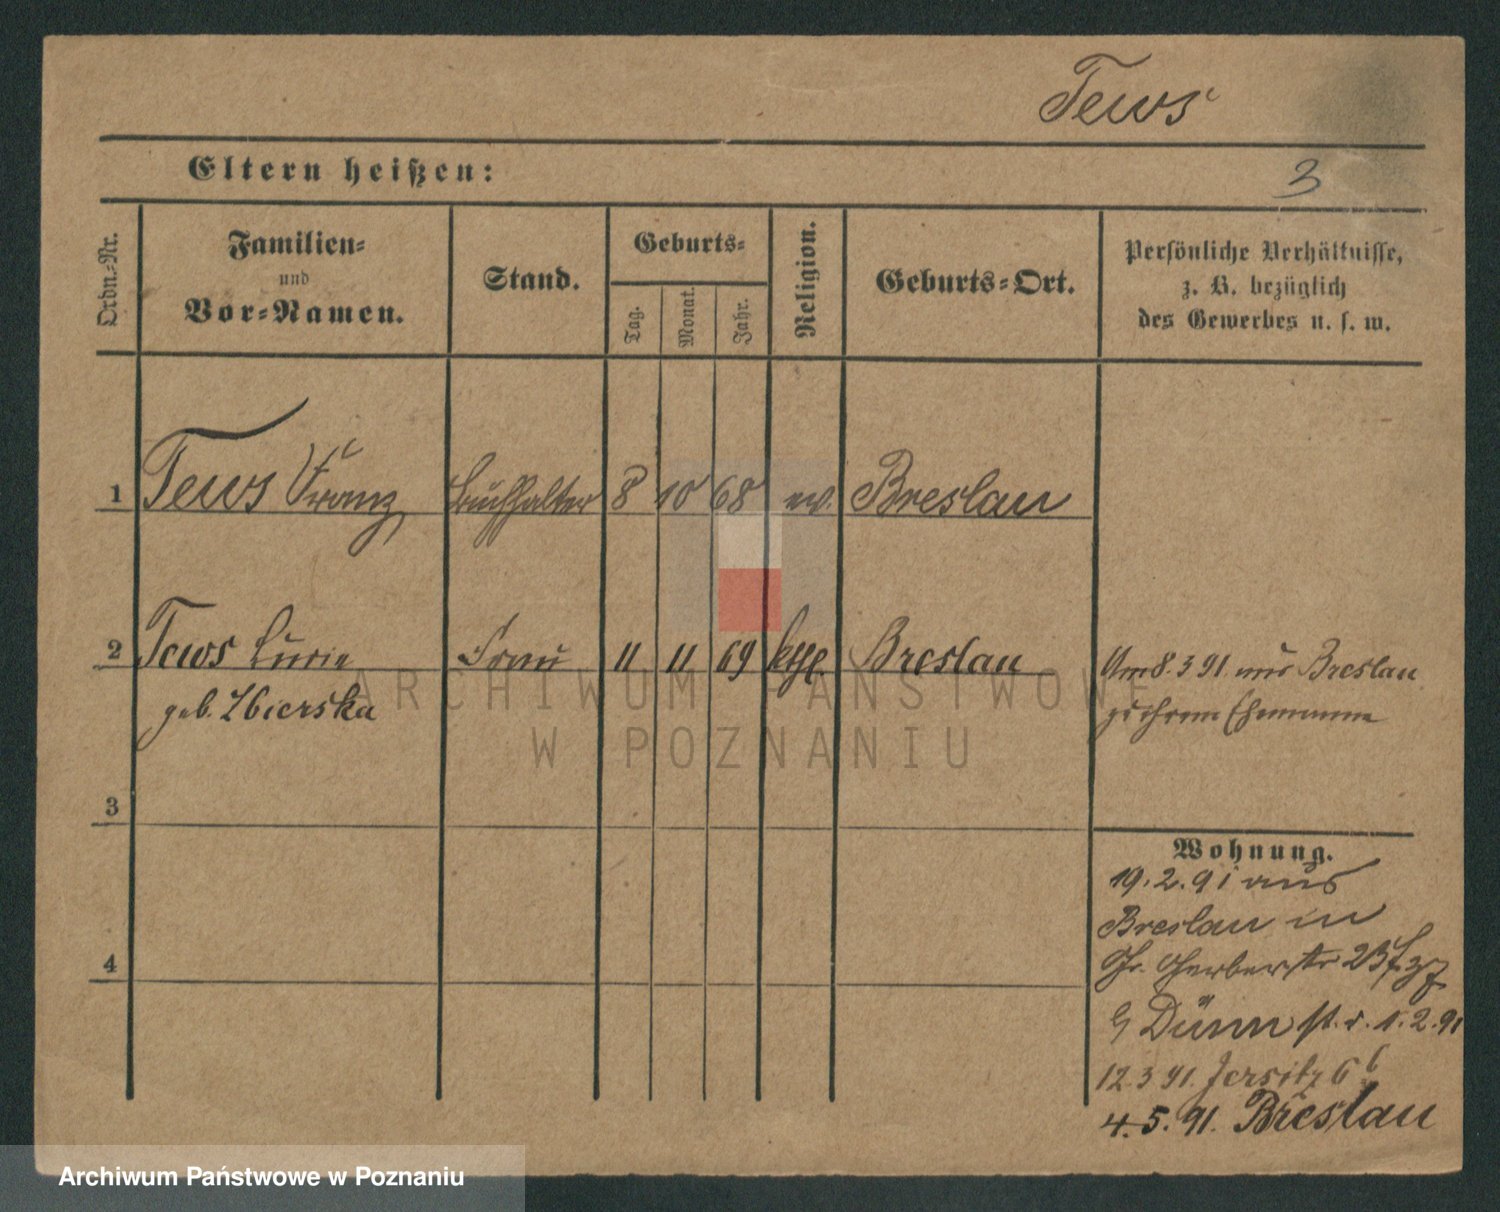 Tews
Eltern heißen:
3
Ordn.-Nr.
Familien-
und
Vor-Namen.
Stand.
Geburts-
Tag.
Monat.
Jahr.
Religion.
Geburts-Ort.
Persönliche Verhältnisse,
z. B. bezüglich
des Gewerbes u. s. w.
1 Tews Franz Buchhalter 8 10 68 ev. Breslau
2 Tews Frau 11 11 69 kth. Breslau
geb. Zbierska
Am 8.3 91 aus Breslau
zu ihrem Ehemanne
3
4
Wohnung.
19.2.91 aus
Breslau in
Gr. Gerberstr 23
Dünn 1.2.91
12.3 91. Jersitz 6
4.5.91. Breslau
ARCHIWUM PAŃSTWOWE
W POZNANIU
Archiwum Państwowe w Poznaniu